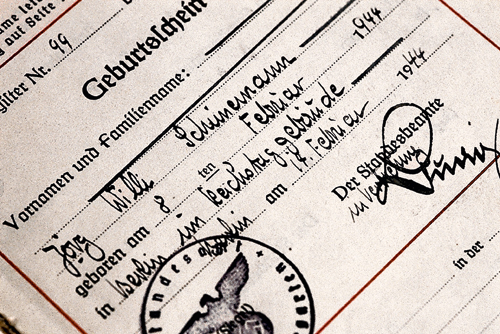 auf Seite
Nr. 99
Geburtsschein
Vornamen und Familienname:
Jörg Willi Schünemann
geboren am 8. ten Februar 1944
in Berlin im Reichstagsgebäude
Berlin am 17. Februar 1944
Der Standesbeamte
in Vertretung
in der